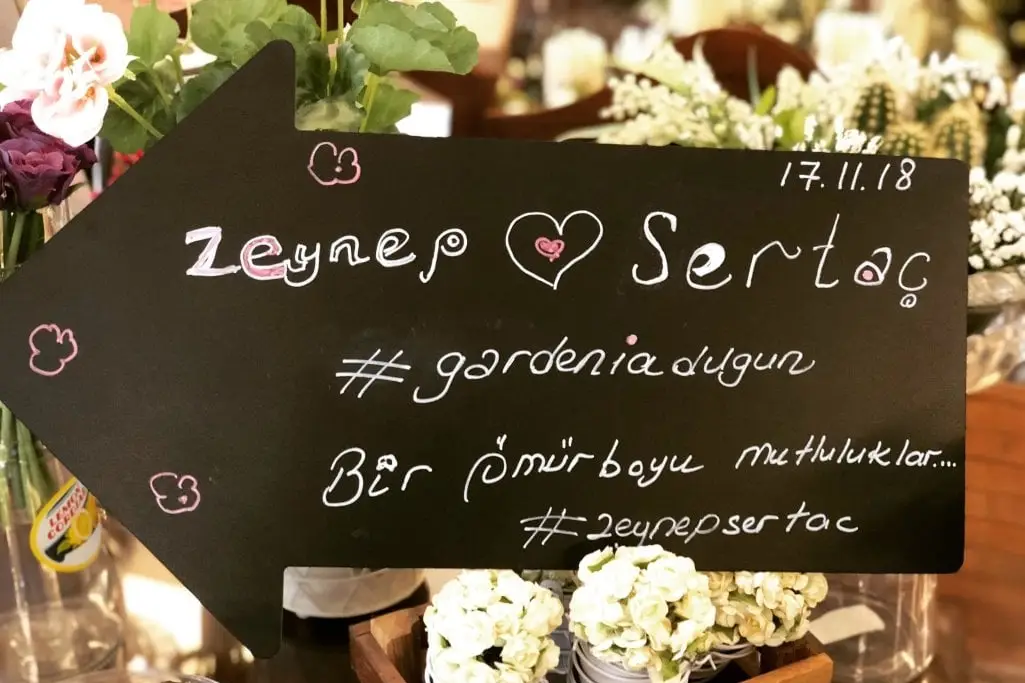 17.11.18
Zeynep Sertaç
#gardeniadugun
Bir ömür boyu mutluluklar...
#zeynepsertac